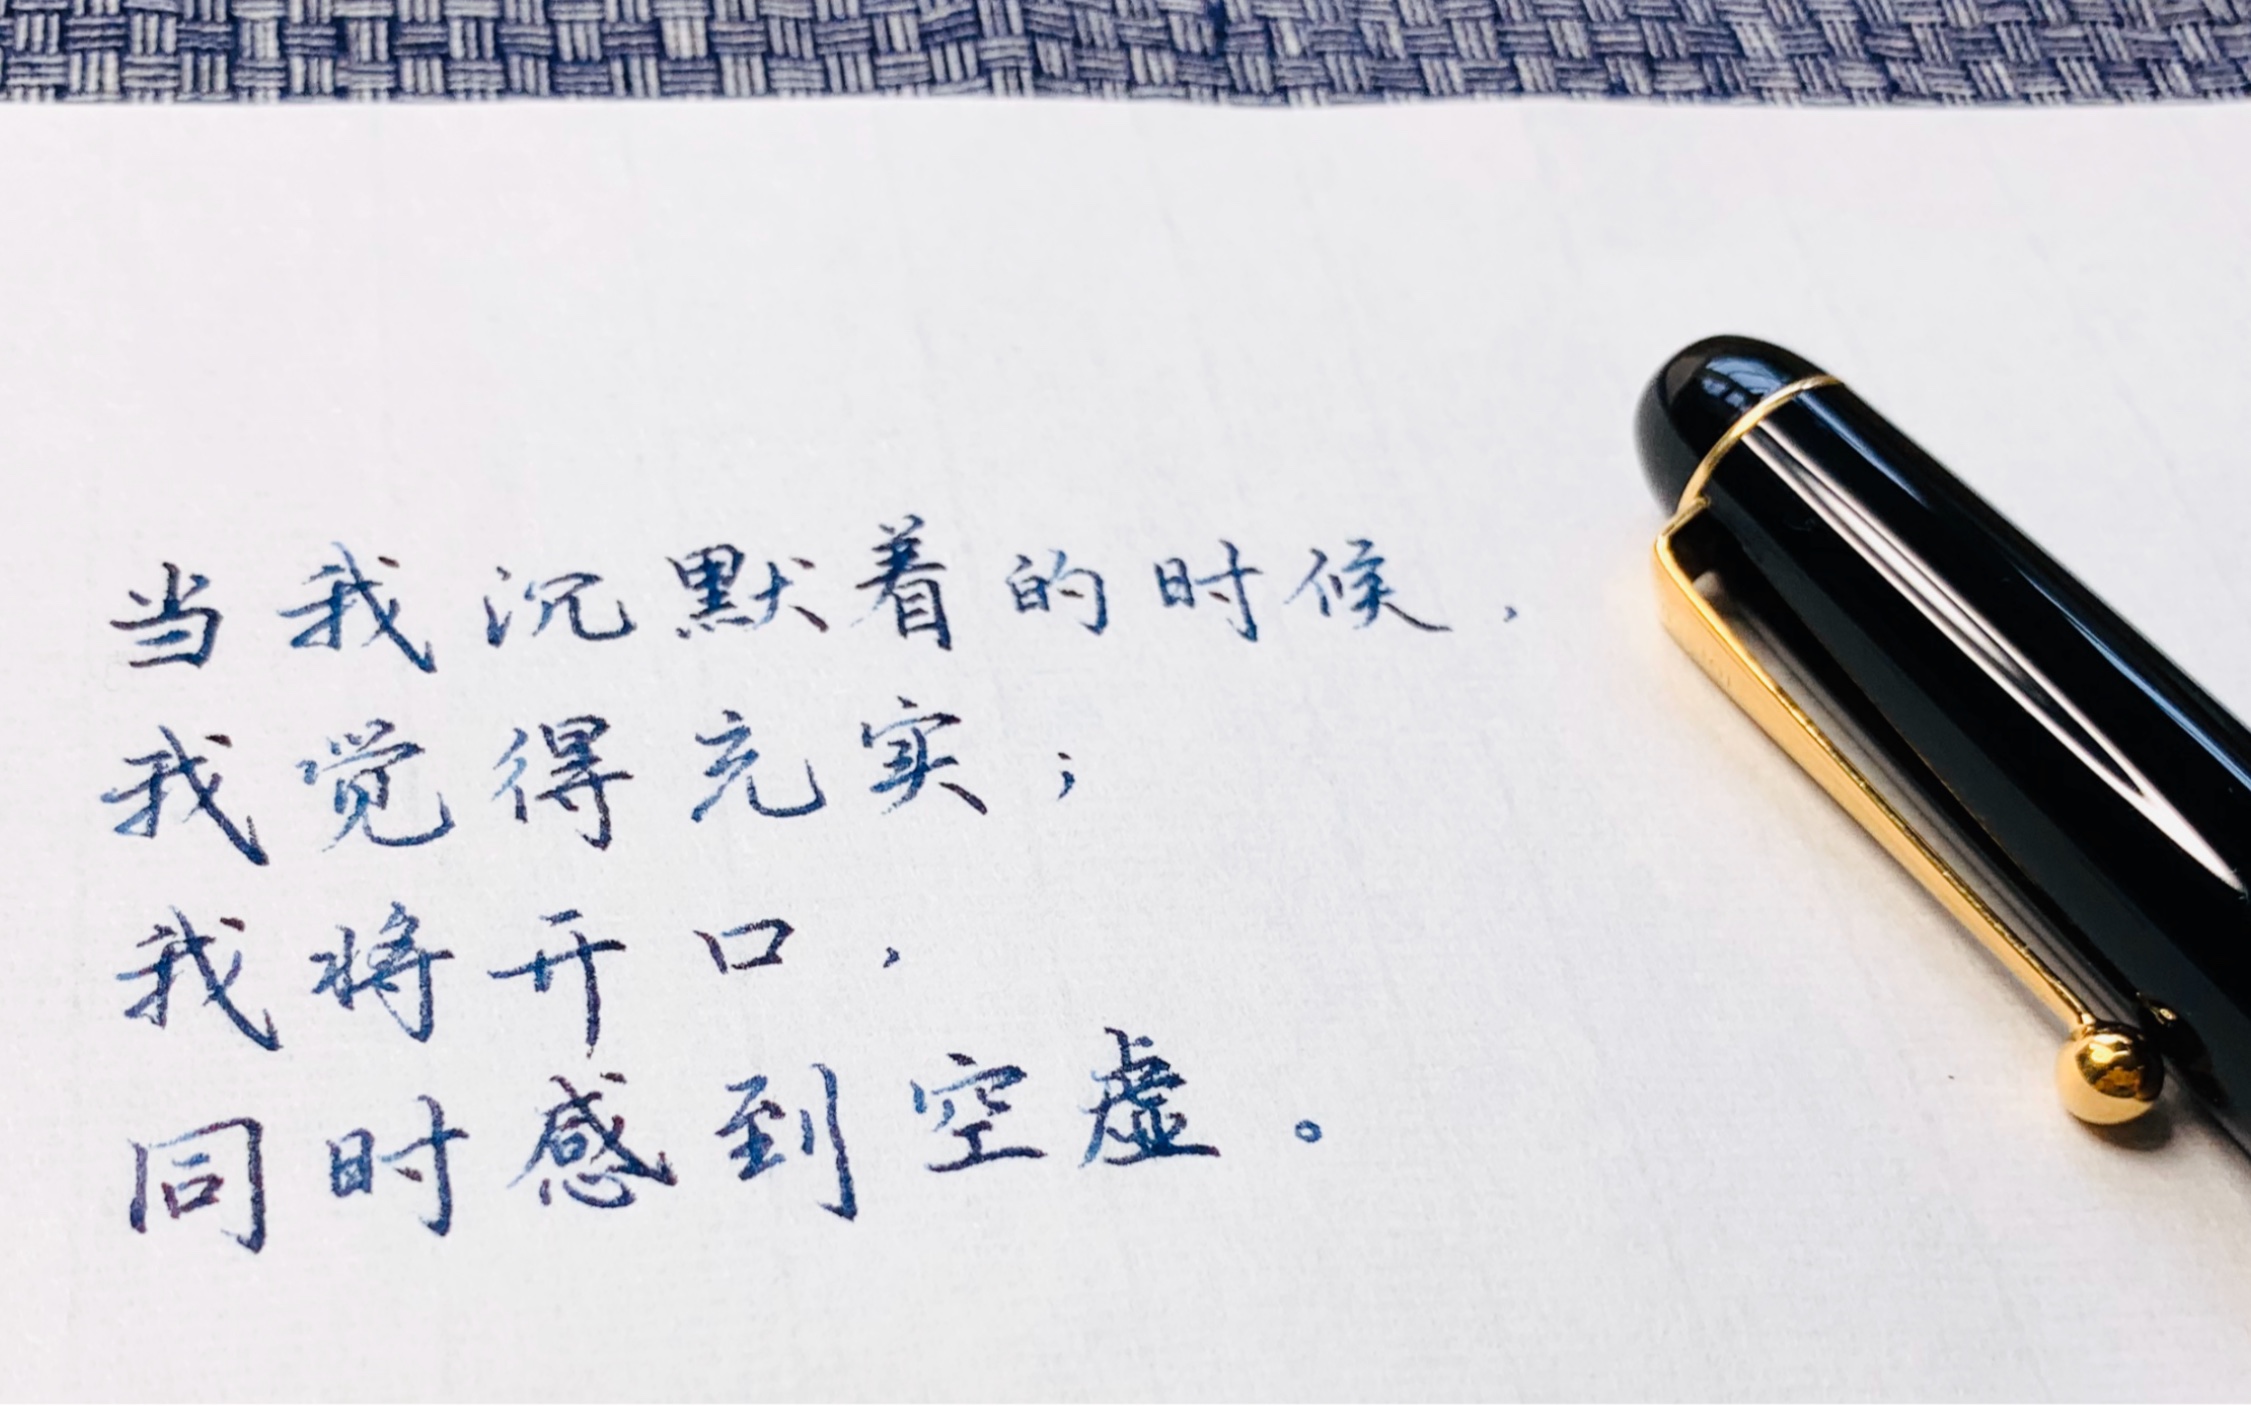 当我沉默着的时候，
我觉得充实；
我将开口，
同时感到空虚。